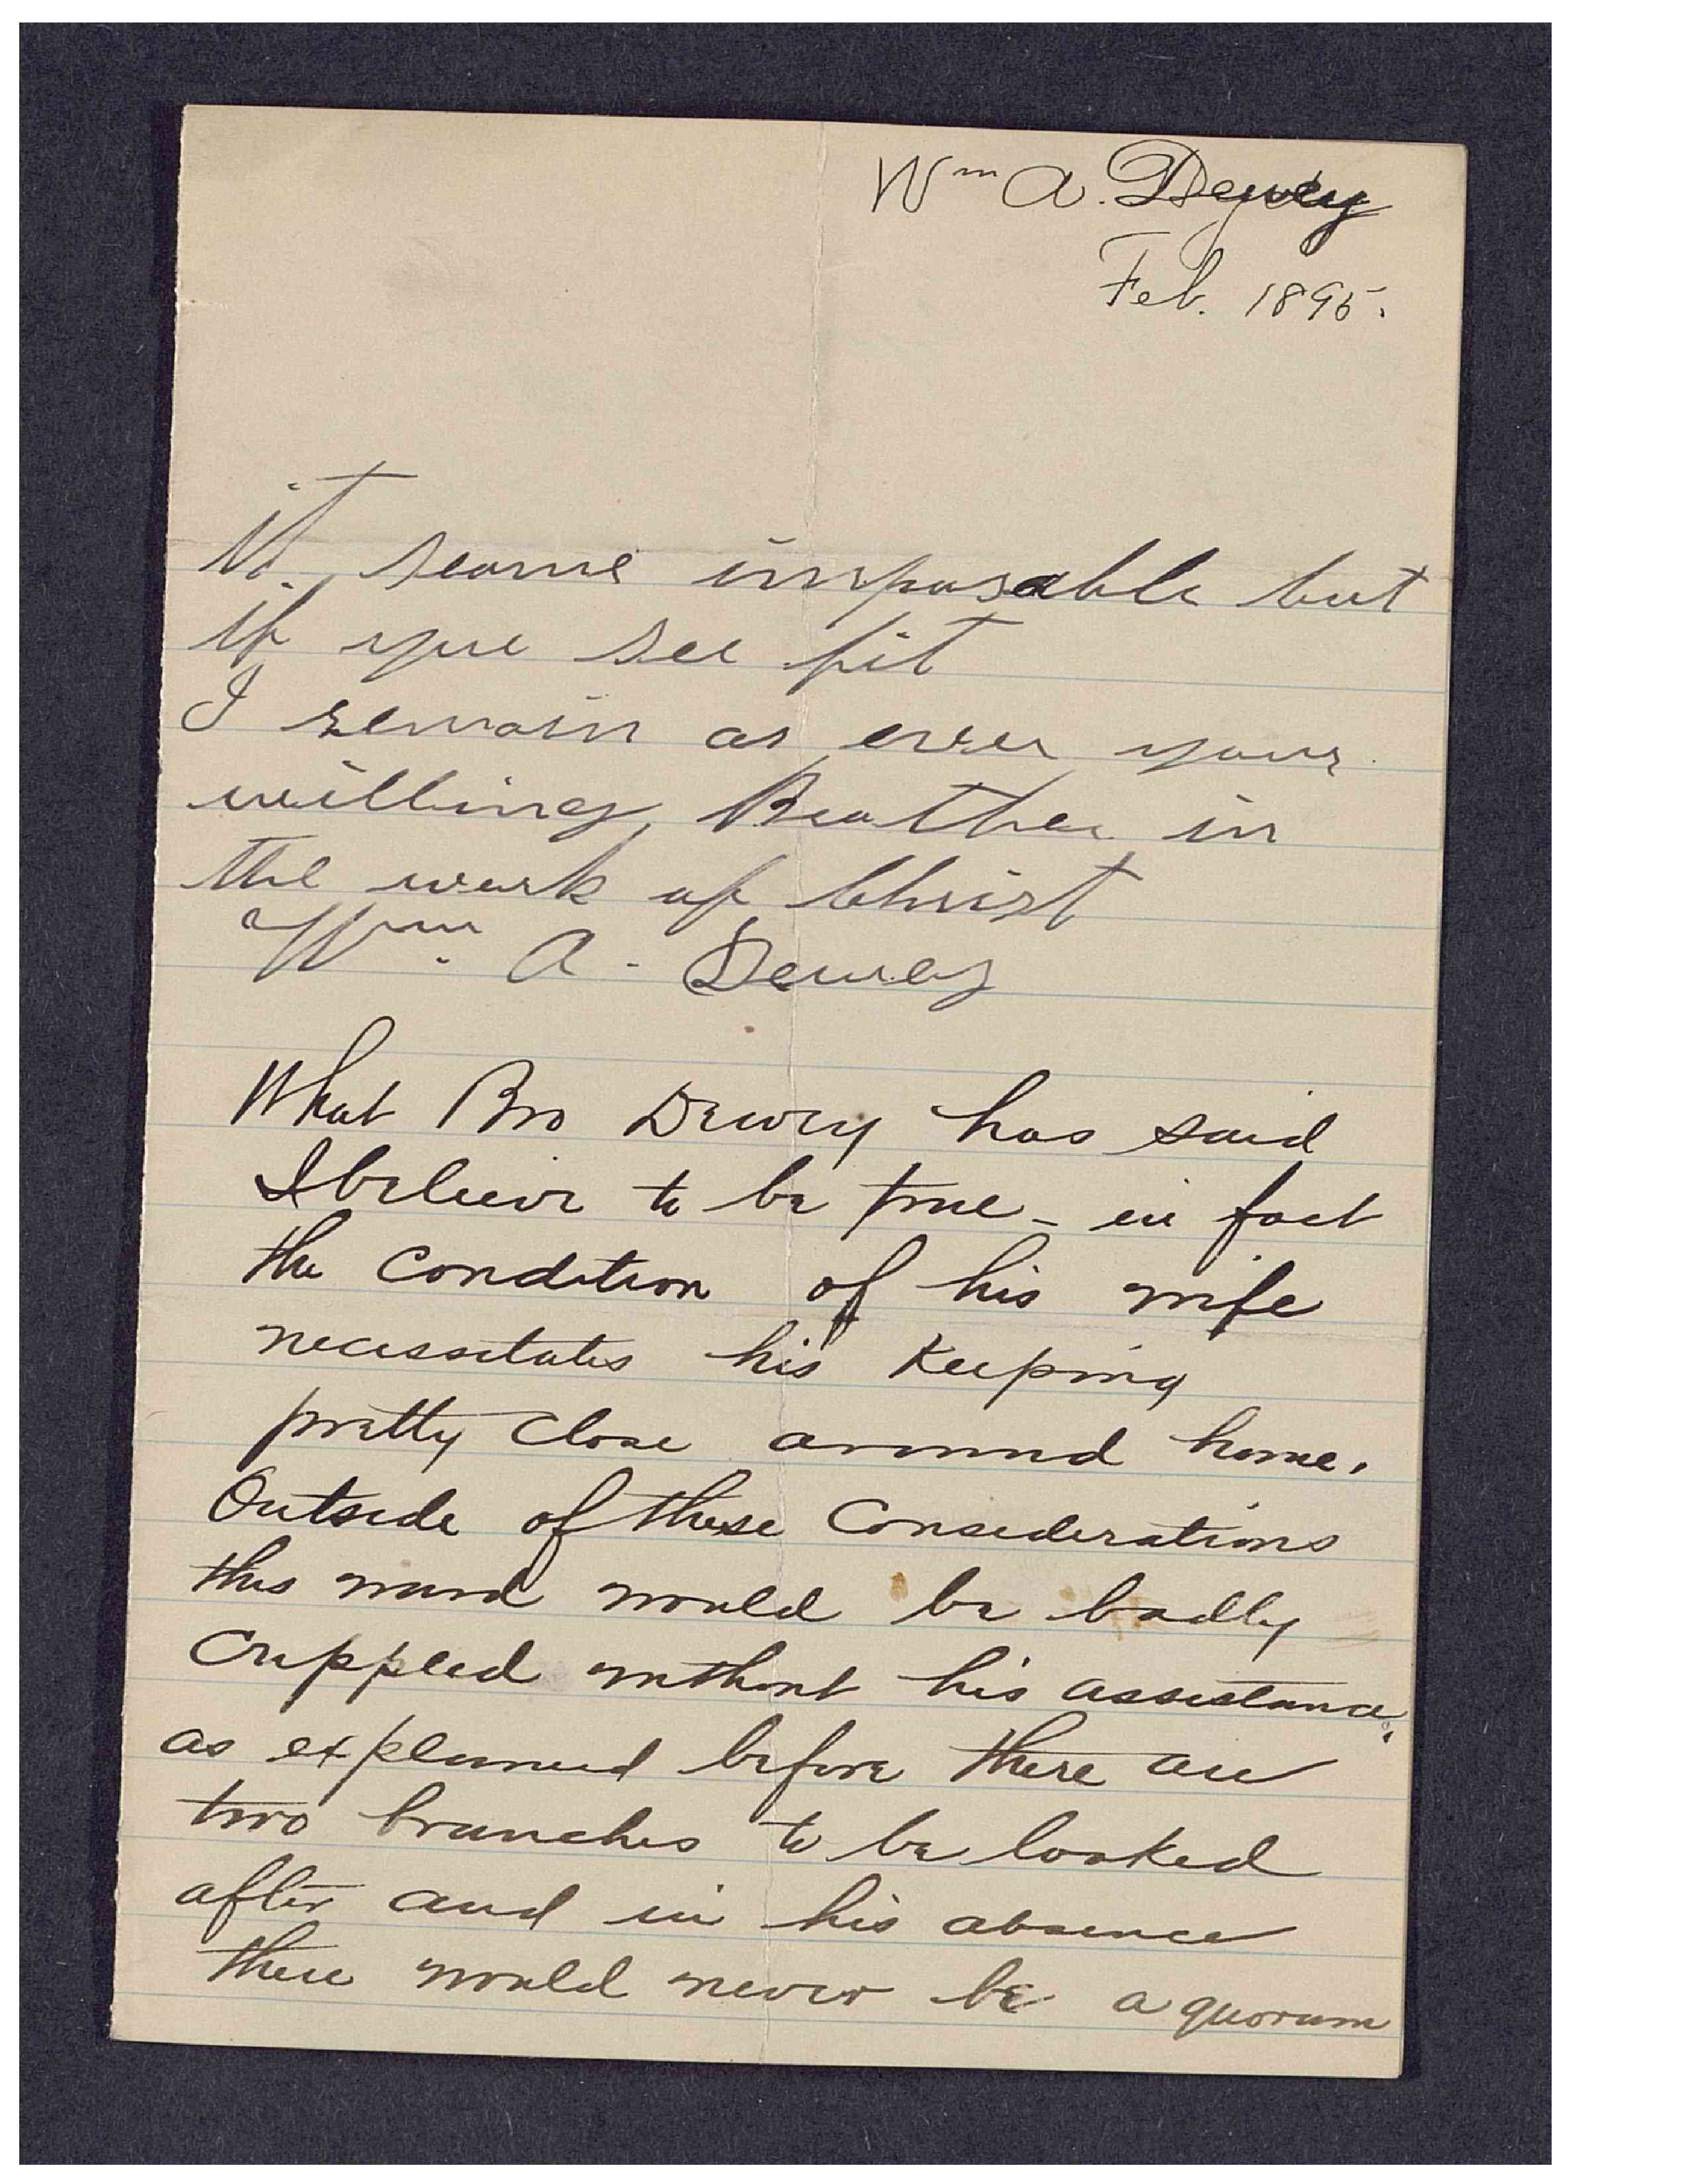 Wm A. Dewey
Feb. 1895.
it seame imposable but
if you see fit
I remain as ever your
willing Brother in
the work of Christ
Wm. A. Dewey
What Bro Dewey has said
I believe to be true - in fact
the condition of his wife
necessitates his keeping
pretty close around home.
Outside of these considerations
this ward would be badly
crippled without his assistance,
as explained before there are
two branches to be looked
after and in his absence
there would never be a quorum